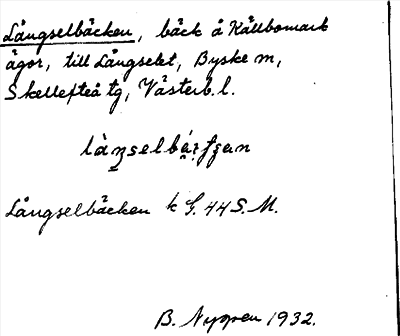 Långselbäcken, bäck å Källbomark
ägor, till Långselet, Byske m,
Skellefteå tg, Västerb. l.
Långselbäcken k G. 44 S. M.
B. Nygren 1932.